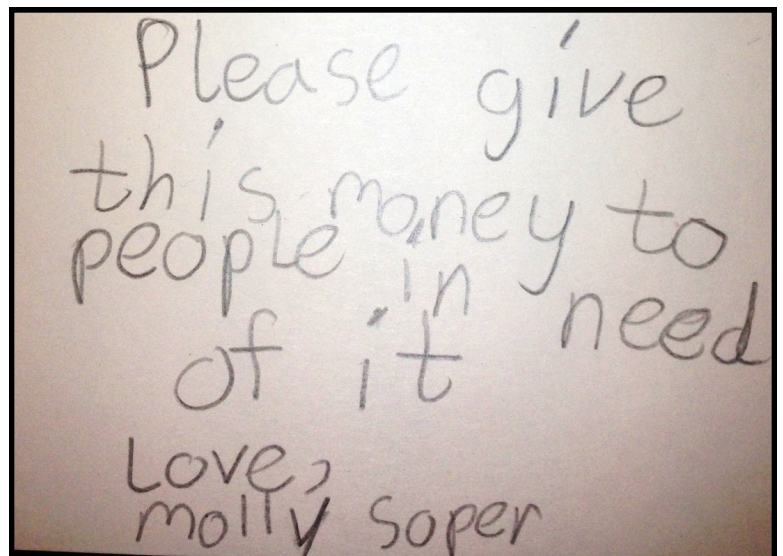 Please give
this money to
people in need
of it
Love,
molly soper